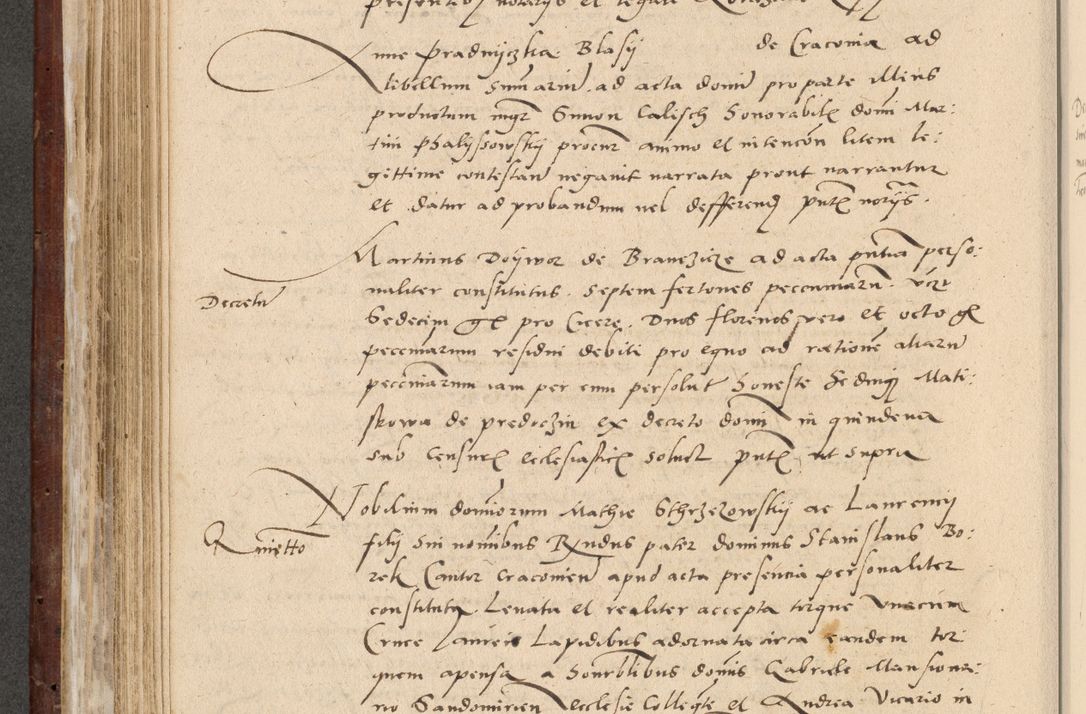 presentibus notariis et
Anne Pradnyczka Blasii de Cracovia ad
libellum summarium ad acta domini pro parte illius
productum magister Simon Calisch honorabilis domini Mar-
tini Phalyssowskii procur animo et intencion litem le-
gittime contestan negavit narrata prout narrantur
et datur ad probandum vel defferend pntibus notariis.
Martinus Doywor de Branczicze ad acta pntia perso-
naliter constitutus. Septem fertones pecuniarum. vcz
Decretum
Sedecim gr pro Cicere. Duos florenos vero et octo gr
pecuniarum residui debiti pro equo ad rationem aliarum
pecuniarum iam per eum persolut honeste Hedvigi Mati-
skowa de predoczin ex decreto domini in quindena
sub censuris ecclesiasticis solvet pntibus ut supra
Nobilium dominorum Mathie Sthrzezowskii ac Laurencii
Quietto
filii sui nominibus Rndus pater dominus Stanislaus Bo-
rek Cantor Cracovien apud acta presencia personaliter
constitutus. Levatu et realiter accepta torque unacum
Cruce aureis Lapidibus adornata circa eandem tor-
quem apensa a honrbilibus dominis Gabriele Mansiona-
rio Sandomirien ecclesie Collegte et Andrea Vicario in